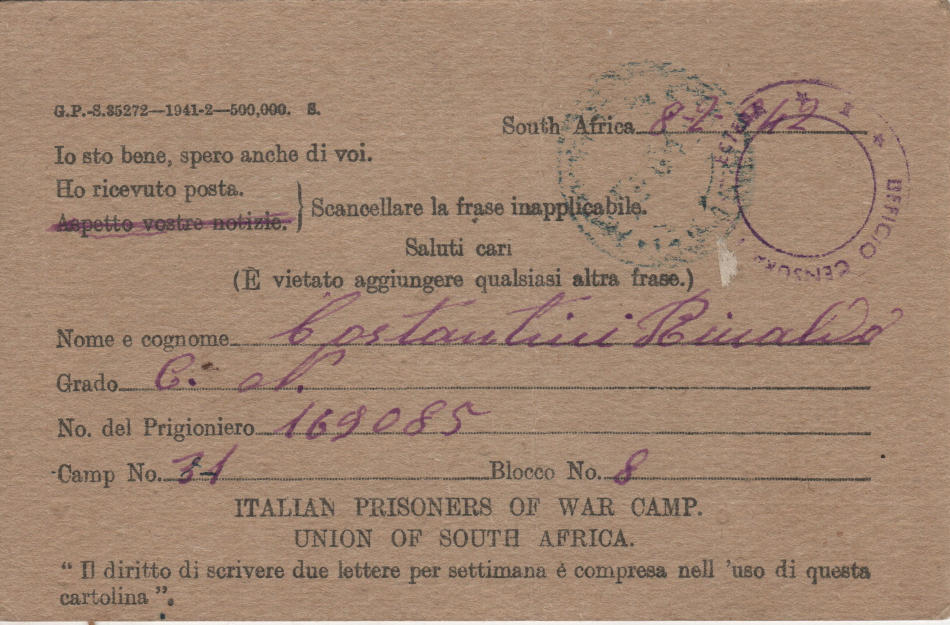 G.P.-S.35272—1941-2—500,000. S.
South Africa 8-2- 42
Io sto bene, spero anche di voi.
Ho ricevuto posta.
Aspetto vostre notizie.
Scancellare la frase inapplicabile.
Saluti cari
(È vietato aggiungere qualsiasi altra frase.)
Nome e cognome Costantini Rinaldo
Grado C. N.
No. del Prigioniero 169085
Camp No. 31 Blocco No. 8
ITALIAN PRISONERS OF WAR CAMP.
UNION OF SOUTH AFRICA.
" Il diritto di scrivere due lettere per settimana è compresa nell 'uso di questa
cartolina ".
UFFICIO CENSURA ESTERA